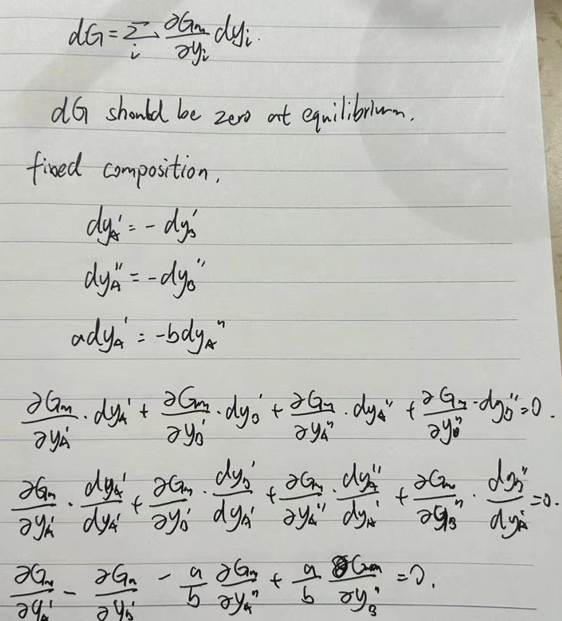 dG = Σ_i ∂Gm/∂yi dyi.
dG should be zero at equilibrium.
fixed composition.
dyA' = - dyB'
dyA'' = -dyB''
a dyA' = -b dyA''
∂Gm/∂yA' · dyA' + ∂Gm/∂yB' · dyB' + ∂Gm/∂yA'' · dyA'' + ∂Gm/∂yB'' · dyB'' = 0.
∂Gm/∂yA' · dyA'/dyA' + ∂Gm/∂yB' · dyB'/dyA' + ∂Gm/∂yA'' · dyA''/dyA' + ∂Gm/∂yB'' · dyB''/dyA' = 0.
∂Gm/∂yA' - ∂Gm/∂yB' - a/b ∂Gm/∂yA'' + a/b ∂Gm/∂yB'' = 0.